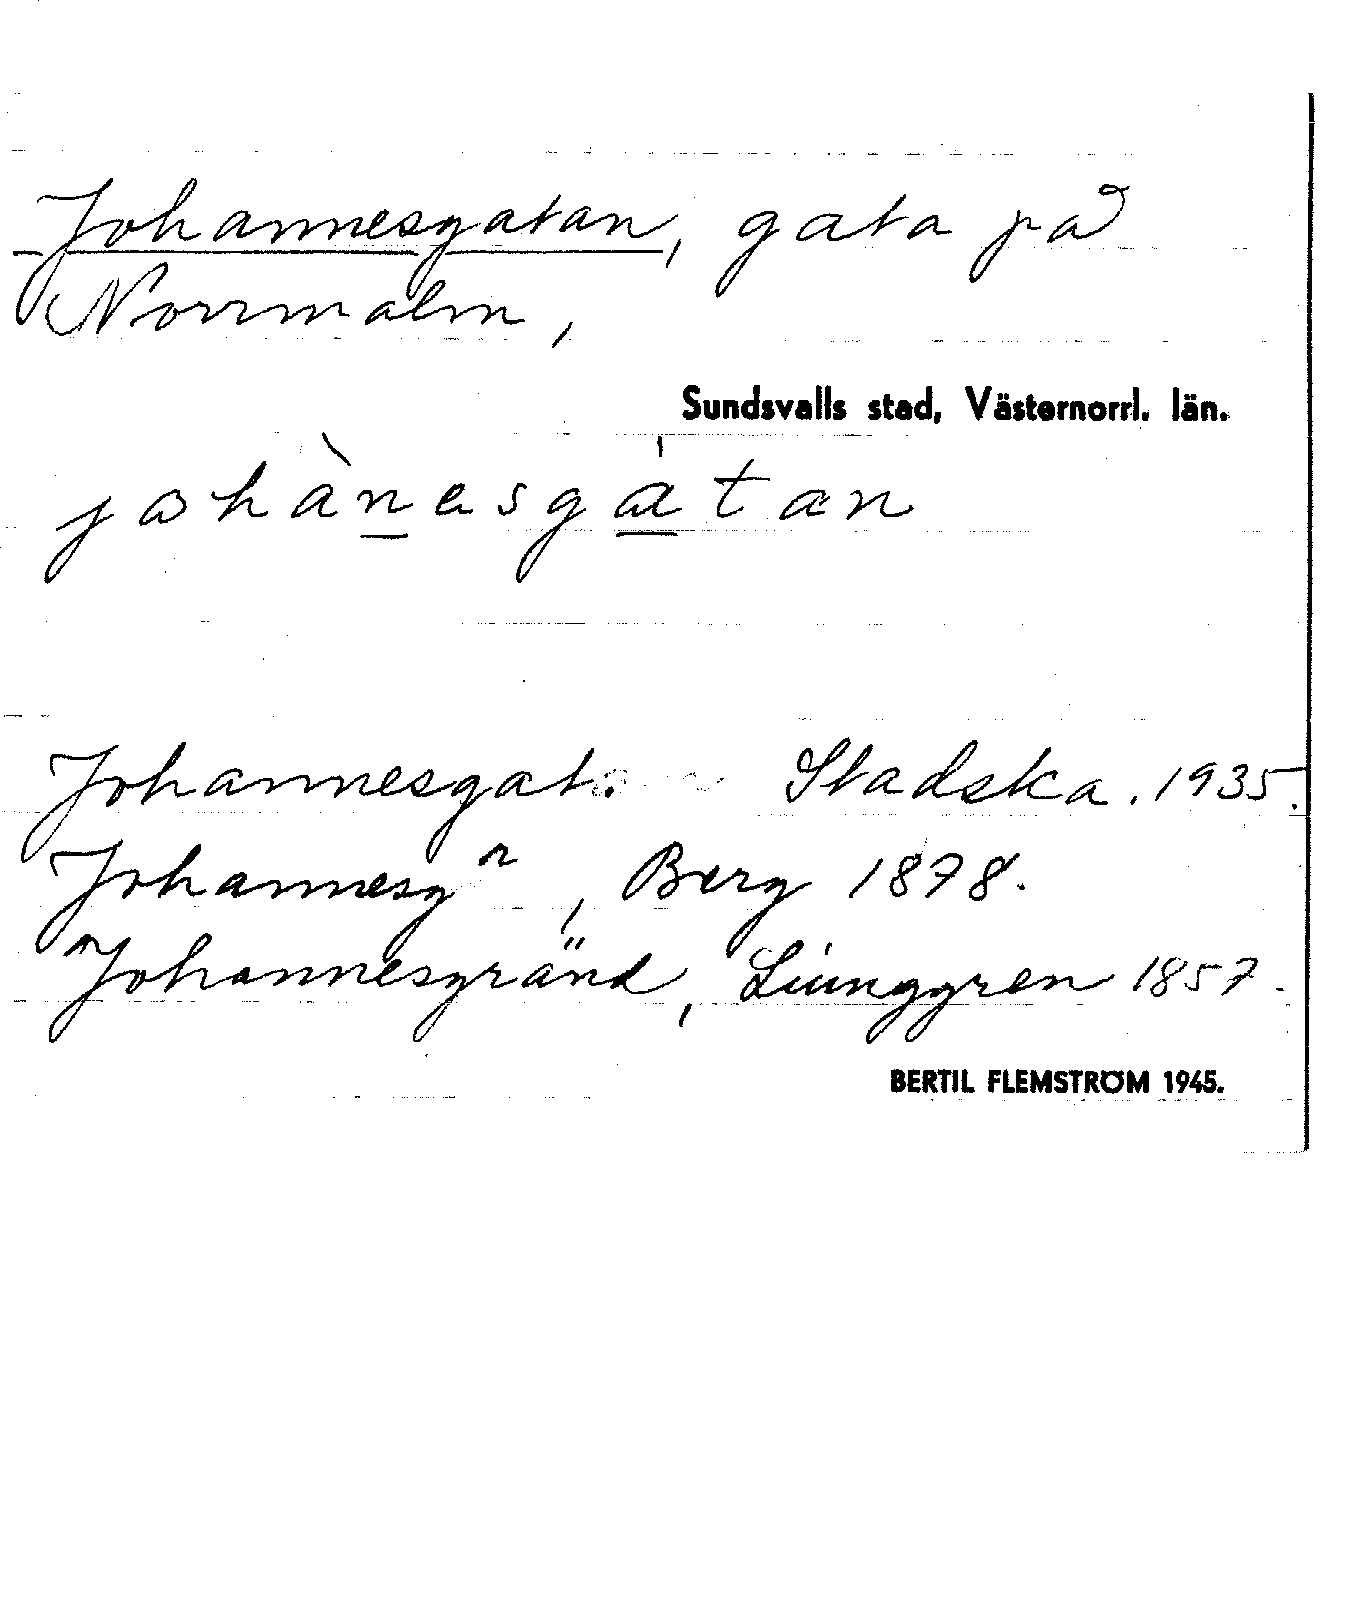 Johannesgatan, gata på
Norrmalm,
Sundsvalls stad, Västernorrl. län.
johànesgatan
Johannesgat. Stadska. 1935.
Johannesg n, Berg 1878.
Johannesgränd, Liunggren 1857.
BERTIL FLEMSTRÖM 1945.